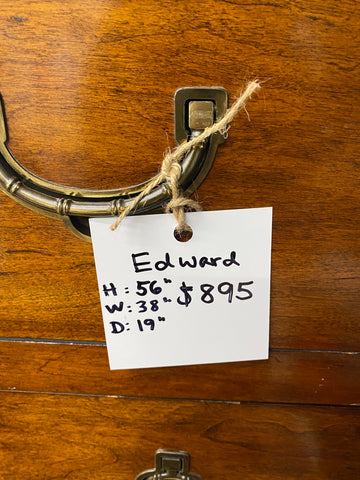 Edward
H: 56"
W: 38" $895
D: 19"